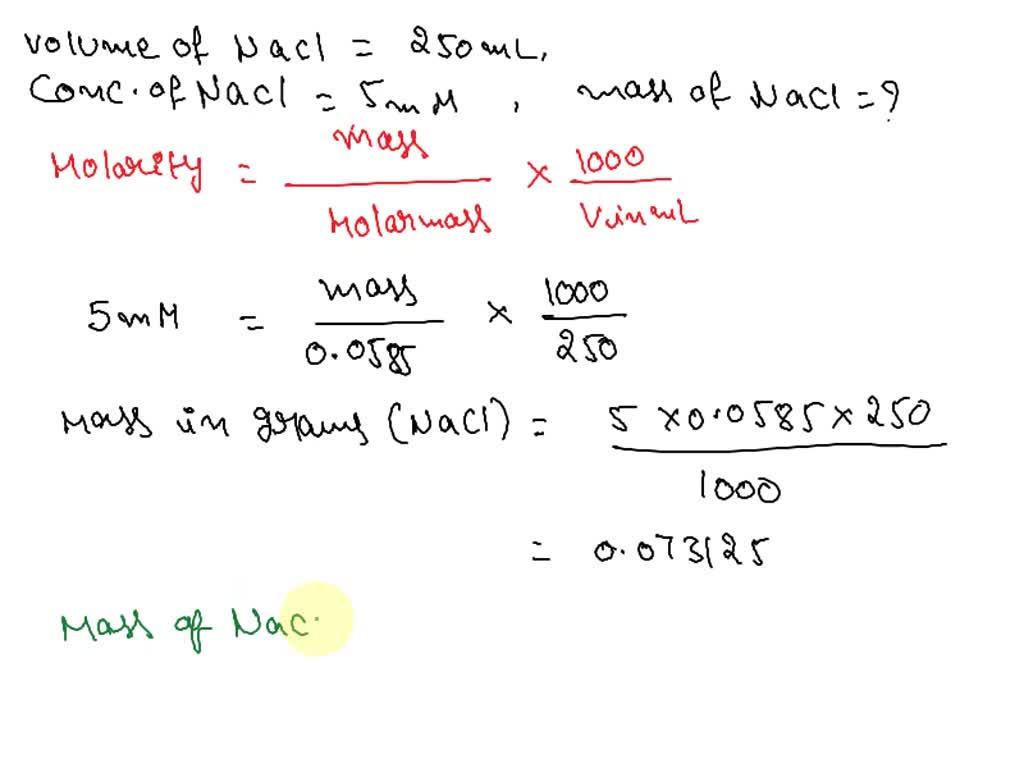 Volume of NaCl = 250 mL,
Conc. of NaCl = 5 mM , mass of NaCl = ?
Molarity = mass / Molar mass × 1000 / V in mL
5 mM = mass / 0.0585 × 1000 / 250
Mass in grams (NaCl) = 5 × 0.0585 × 250 / 1000
= 0.073125
Mass of NaC